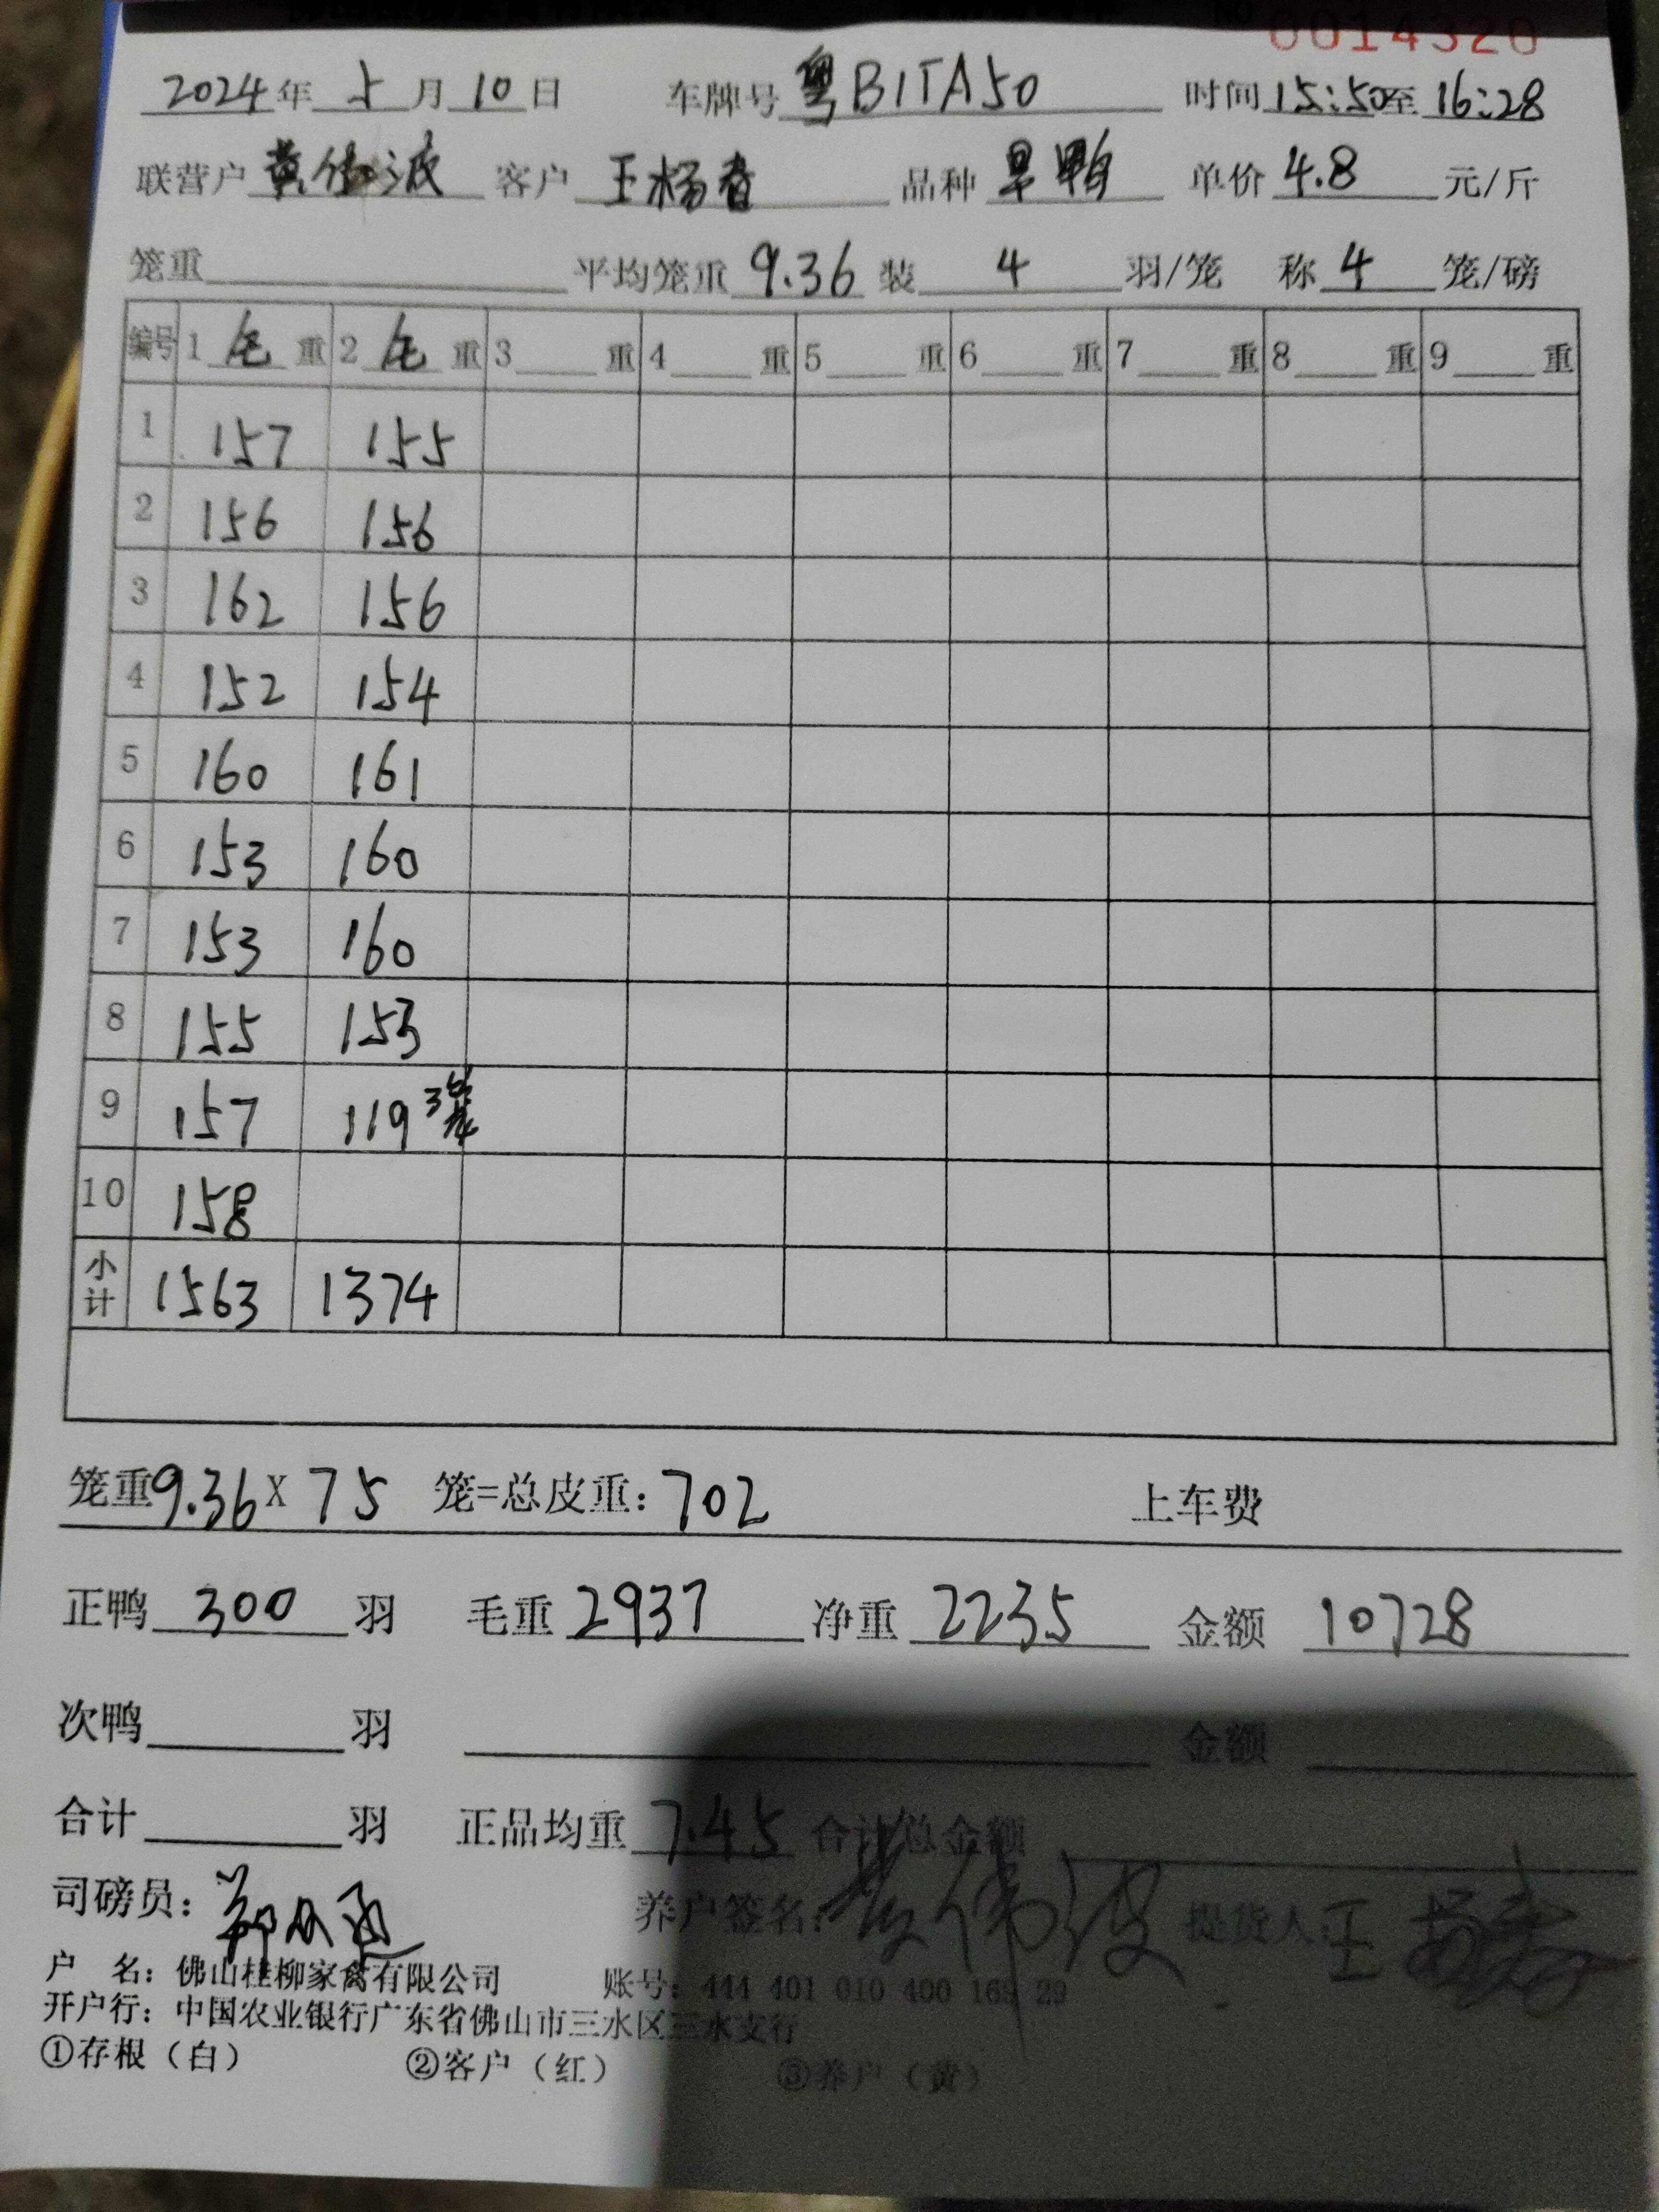 0014320
2024年 5月10日 车牌号 粤B1TA50 时间15:50至16:28
联营户 黄伟波 客户 王杨春 品种 旱鸭 单价 4.8 元/斤
笼重 平均笼重 9.36 装 4 羽/笼 称 4 笼/磅
编号 1 毛 重 2 毛 重 3 重 4 重 5 重 6 重 7 重 8 重 9 重
1 157 155
2 156 156
3 162 156
4 152 154
5 160 161
6 153 160
7 153 160
8 155 153
9 157 119 3笼
10 158
小计 1563 1374
笼重9.36X 75 笼=总皮重:702 上车费
正鸭 300 羽 毛重 2937 净重 2235 金额 10728
次鸭 羽 金额
合计 羽 正品均重 7.45 合计总金额
司磅员: 养户签名:黄伟波 提货人:王杨春
户 名:佛山桂柳家禽有限公司 账号:444 401 010 400 169 29
开户行:中国农业银行广东省佛山市三水区三水支行
①存根(白) ②客户(红) ③养户(黄)